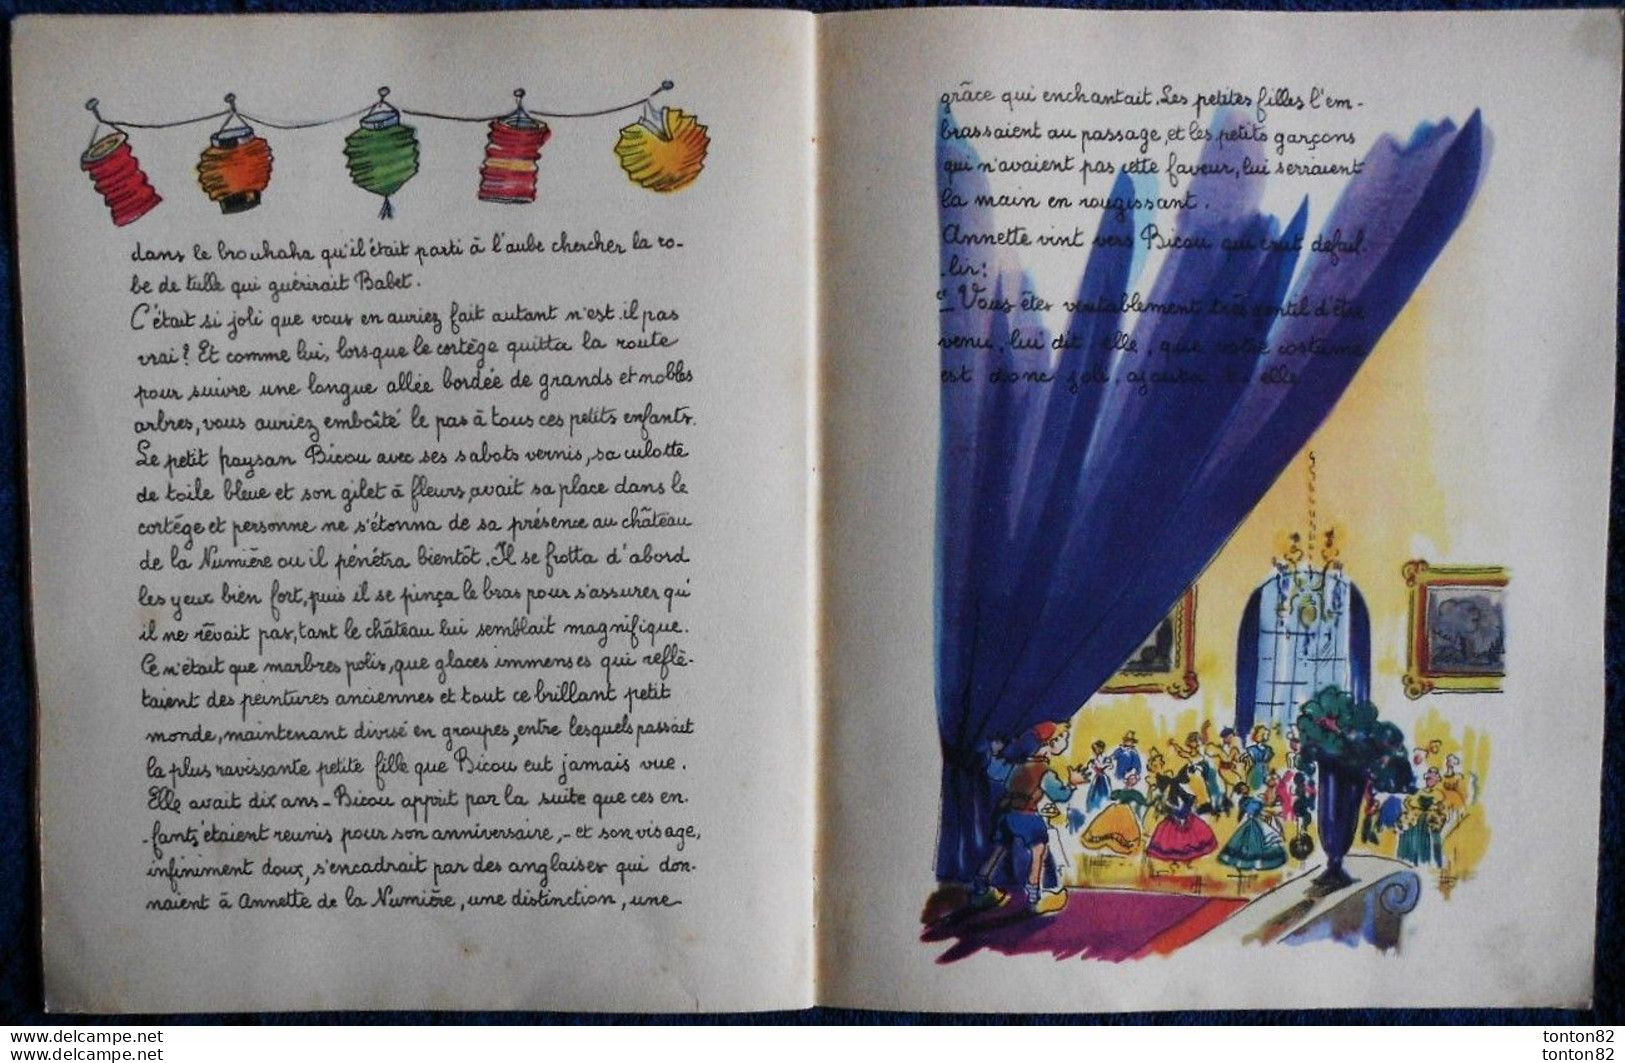 dans le brouhaha qu'il était parti à l'aube chercher la ro-
be de tulle qui guérirait Babet.
C'était si joli que vous en auriez fait autant n'est-il pas
vrai? Et comme lui, lorsque le cortège quitta la route
pour suivre une longue allée bordée de grands et nobles
arbres, vous auriez emboîté le pas à tous ces petits enfants.
Le petit paysan Bicou avec ses sabots vernis, sa culotte
de toile bleue et son gilet à fleurs, avait sa place dans le
cortège et personne ne s'étonna de sa présence au château
de la Numière ou il pénétra bientôt. Il se frotta d'abord
les yeux bien fort, puis il se pinça le bras pour s'assurer qu'
il ne rêvait pas, tant le château lui semblait magnifique.
Ce n'était que marbres polis, que glaces immenses qui reflè-
taient des peintures anciennes et tout ce brillant petit
monde, maintenant divisé en groupes, entre lesquels passait
la plus ravissante petite fille que Bicou eut jamais vue.
Elle avait dix ans - Bicou apprit par la suite que ces en-
-fants, étaient réunis pour son anniversaire, - et son visage,
infiniment doux, s'encadrait par des anglaises qui don-
naient à Annette de la Numière, une distinction, une
grâce qui enchantait. Les petites filles l'em-
brassaient au passage, et les petits garçons
qui n'avaient pas cette faveur, lui serraient
la main en rougissant.
Annette vint vers Bicou qui crut défail-
-lir:
"- Vous êtes véritablement très gentil d'être
venu, lui dit-elle, que votre costume
est donc joli, ajouta-t-elle
www.delcampe.net
www.delcampe.net
tonton82
tonton82